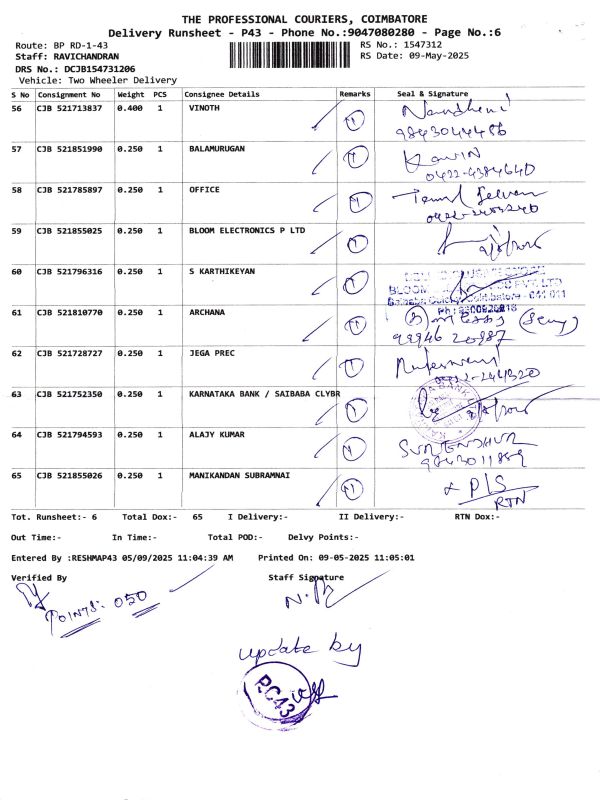 THE PROFESSIONAL COURIERS, COIMBATORE
Delivery Runsheet - P43 - Phone No.:9047080280 - Page No.:6
Route: BP RD-1-43 RS No.: 1547312
Staff: RAVICHANDRAN RS Date: 09-May-2025
DRS No.: DCJB154731206
Vehicle: Two Wheeler Delivery
S No Consignment No Weight PCS Consignee Details Remarks Seal & Signature
56 CJB 521713837 0.400 1 VINOTH 1
9843044486
57 CJB 521851990 0.250 1 BALAMURUGAN 1
0422-4384640
58 CJB 521785897 0.250 1 OFFICE 1
59 CJB 521855025 0.250 1 BLOOM ELECTRONICS P LTD 1
60 CJB 521796316 0.250 1 S KARTHIKEYAN 1
61 CJB 521810770 0.250 1 ARCHANA 1
99946 20987
62 CJB 521728727 0.250 1 JEGA PREC 1
63 CJB 521752350 0.250 1 KARNATAKA BANK / SAIBABA CLYBR 1
64 CJB 521794593 0.250 1 ALAJY KUMAR 1
65 CJB 521855026 0.250 1 MANIKANDAN SUBRAMNAI 1 P/S
RTN
Tot. Runsheet:- 6 Total Dox:- 65 I Delivery:- II Delivery:- RTN Dox:-
Out Time:- In Time:- Total POD:- Delvy Points:-
Entered By :RESHMAP43 05/09/2025 11:04:39 AM Printed On: 09-05-2025 11:05:01
Verified By Staff Signature
POINTS: 050
update by
RC43